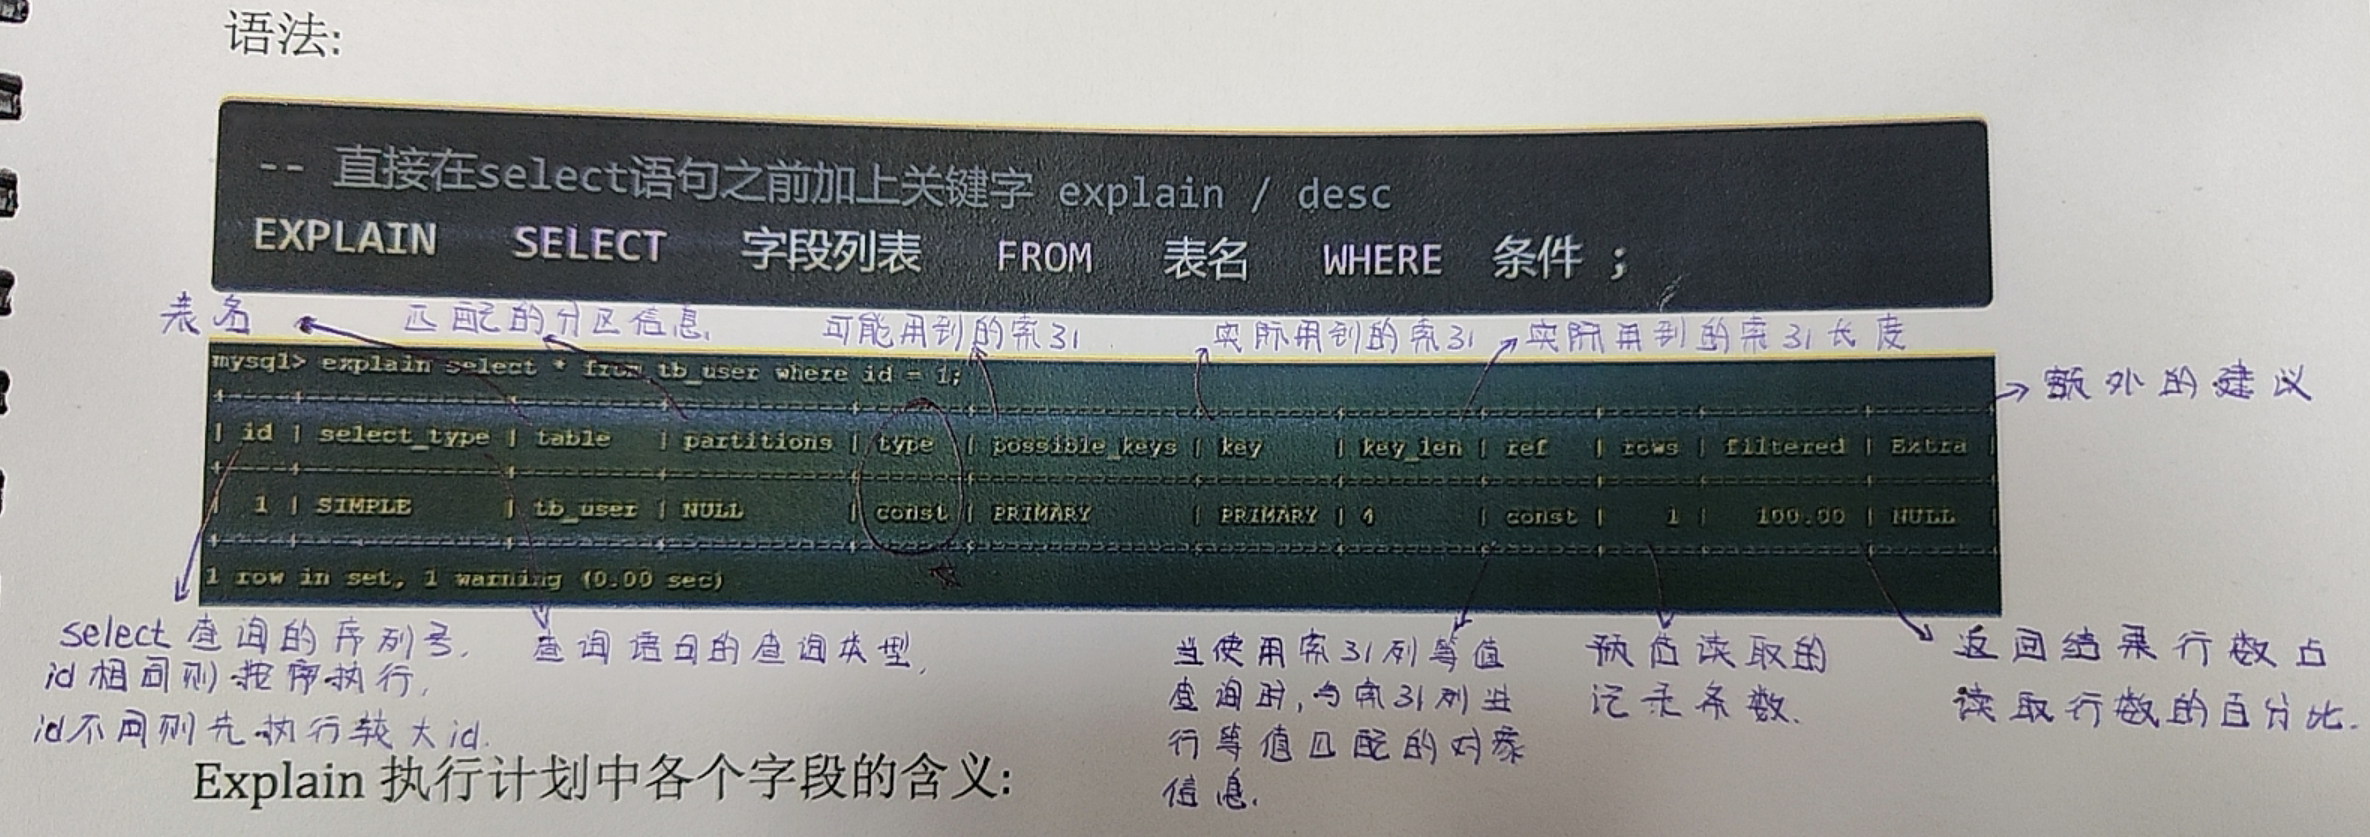 语法:
-- 直接在select语句之前加上关键字 explain / desc
EXPLAIN SELECT 字段列表 FROM 表名 WHERE 条件 ;
表名
匹配的分区信息.
可能用到的索引
实际用到的索引
实际用到的索引长度
额外的建议
mysql> explain select * from tb_user where id = 1;
| id | select_type | table | partitions | type | possible_keys | key | key_len | ref | rows | filtered | Extra |
| 1 | SIMPLE | tb_user | NULL | const | PRIMARY | PRIMARY | 4 | const | 1 | 100.00 | NULL |
1 row in set, 1 warning (0.00 sec)
select 查询的序列号.
id相同则按序执行,
id不同则先执行较大id.
查询语句的查询类型,
当使用索引列等值
查询时,与索引列进
行等值匹配的对象
信息.
预估读取的
记录条数.
返回结果行数占
读取行数的百分比.
Explain 执行计划中各个字段的含义: